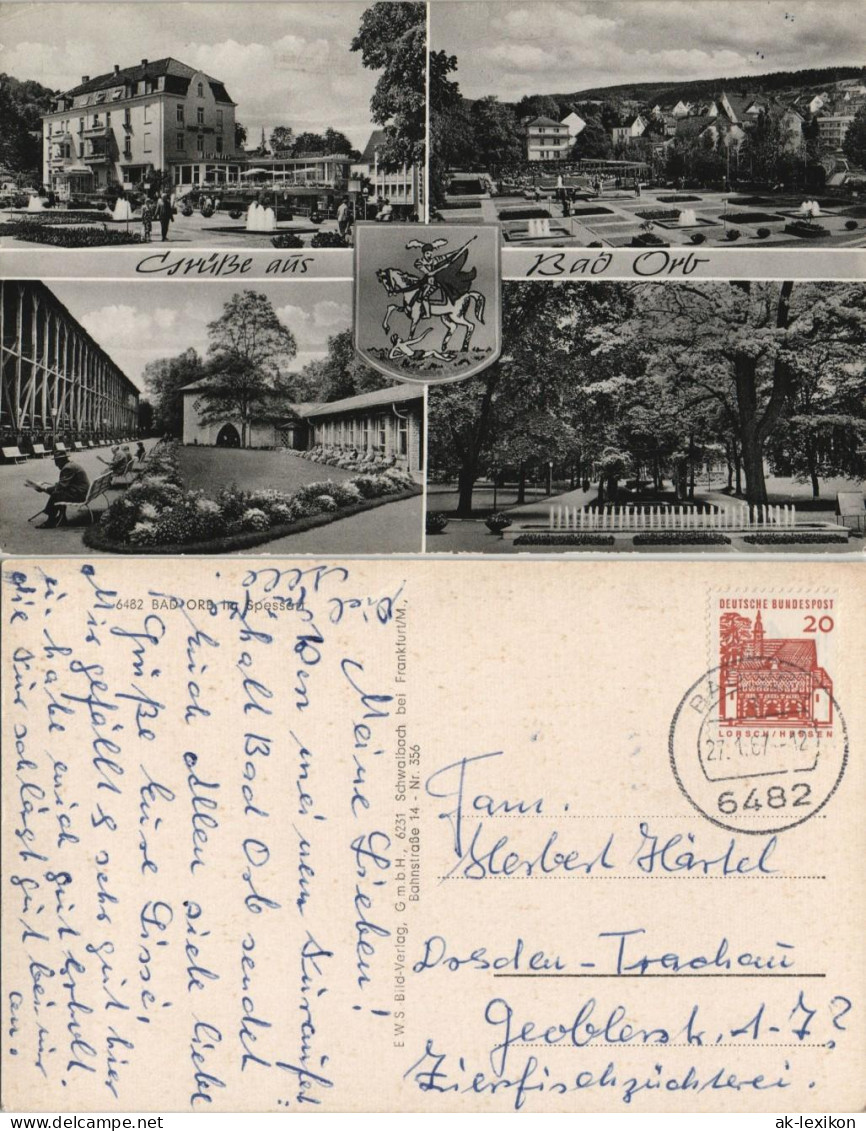 Grüße aus
Bad Orb
6482 BAD ORB im Spessart
Meine Lieben!
Von meinem Kuraufent
halt Bad Orb sendet
Euch allen viele liebe
Grüße Eure Lissi,
Mir gefällt es sehr gut hier
u. habe mich gut erholt.
die Kur schlägt gut bei mir
an.
EWS-Bild-Verlag, GmbH, 6231 Schwalbach bei Frankfurt/M.,
Bahnstraße 14 - Nr. 356
DEUTSCHE BUNDESPOST
20
LORSCH/HESSEN
27.1.67-12
6482
Fam.
Herbert Härtel
Dresden-Trachau
Geoblerstr. 1-7?
Zierfischzüchterei.
ak-lexikon